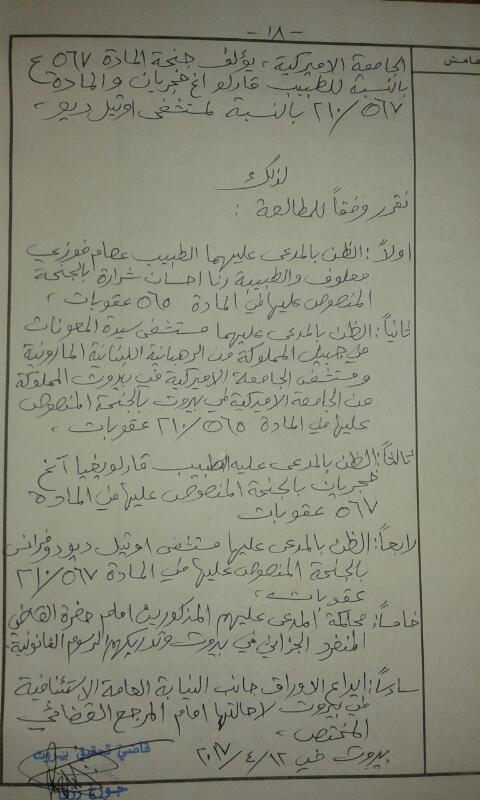 - ١٨ -
هامش
الجامعة الاميركية، يؤلف جنحة المادة ٥٦٧ ع
بالنسبة للطبيب قارلو اغ خجريان والمادة
٢١٠/٥٦٧ بالنسبة لمستشفى اوتيل ديو،
لذلك
نقرر وفقاً للمطالعة :
اولاً: الظن بالمدعى عليهما الطبيب عصام فوزي
معلوف والطبيبة رنا احسان شرارة بالجنحة
المنصوص عليها في المادة ٥٦٥ عقوبات،
ثانياً: الظن بالمدعى عليهما مستشفى سيدة المعونات
في جبيل المملوكة من الرهبانية اللبنانية المارونية
ومستشفى الجامعة الاميركية في بيروت المملوكة
من الجامعة الاميركية في بيروت بالجنحة المنصوص
عليها في المادة ٢١٠/٥٦٥ عقوبات،
ثالثاً: الظن بالمدعى عليه الطبيب قارلو
بالجنحة المنصوص عليها في المادة
٥٦٧ عقوبات
رابعاً: الظن بالمدعى عليها مستشفى اوتيل ديو دو فرانس
بالجنحة المنصوص عليها في المادة ٢١٠/٥٦٧
عقوبات،
خامساً: محاكمة المدعى عليهم المذكورين امام حضرة القاضي
المنفرد الجزائي في بيروت وتدريكهم الرسوم القانونية،
سادساً: ايداع الاوراق جانب النيابة العامة الاستئنافية
في بيروت لاحالتها امام المرجع القضائي
المختص،
بيروت في ١٢/٤/٢٠١٧
قاضي تحقيق بيروت